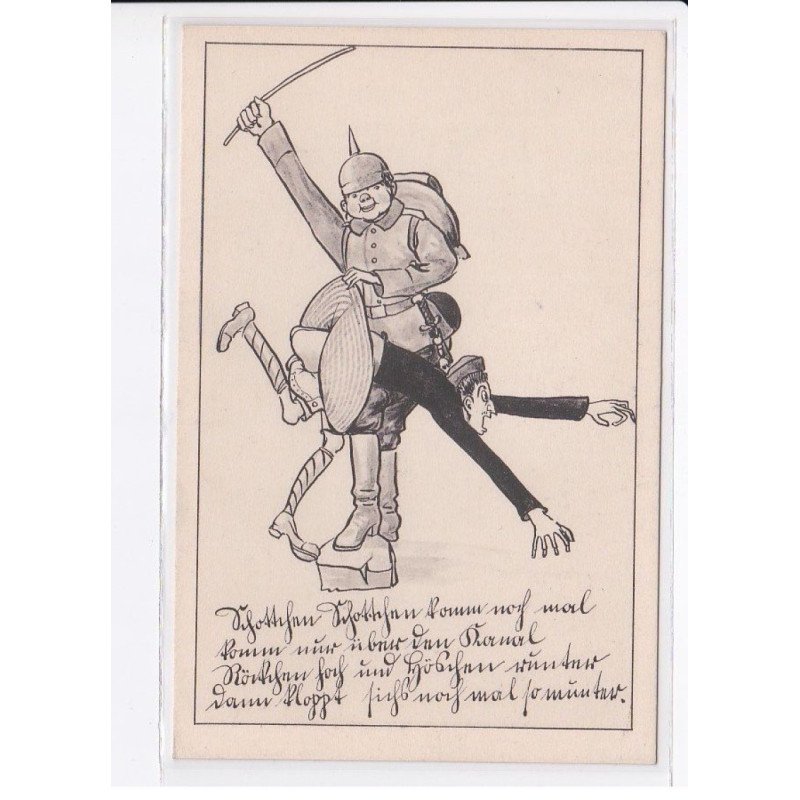 Schottchen Schottchen komm noch mal
komm nur über den Kanal
Röckchen hoch und Höschen runter
dann kloppt sichs noch mal so munter.